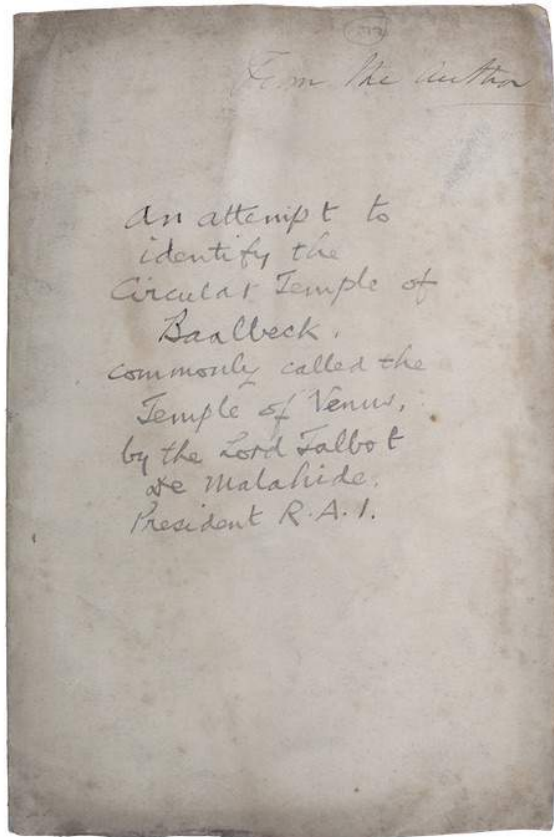 From the author
An attempt to
identify the
Circular Temple of
Baalbeck.
commonly called the
Temple of Venus,
by the Lord Talbot
de Malahide.
President R.A.I.